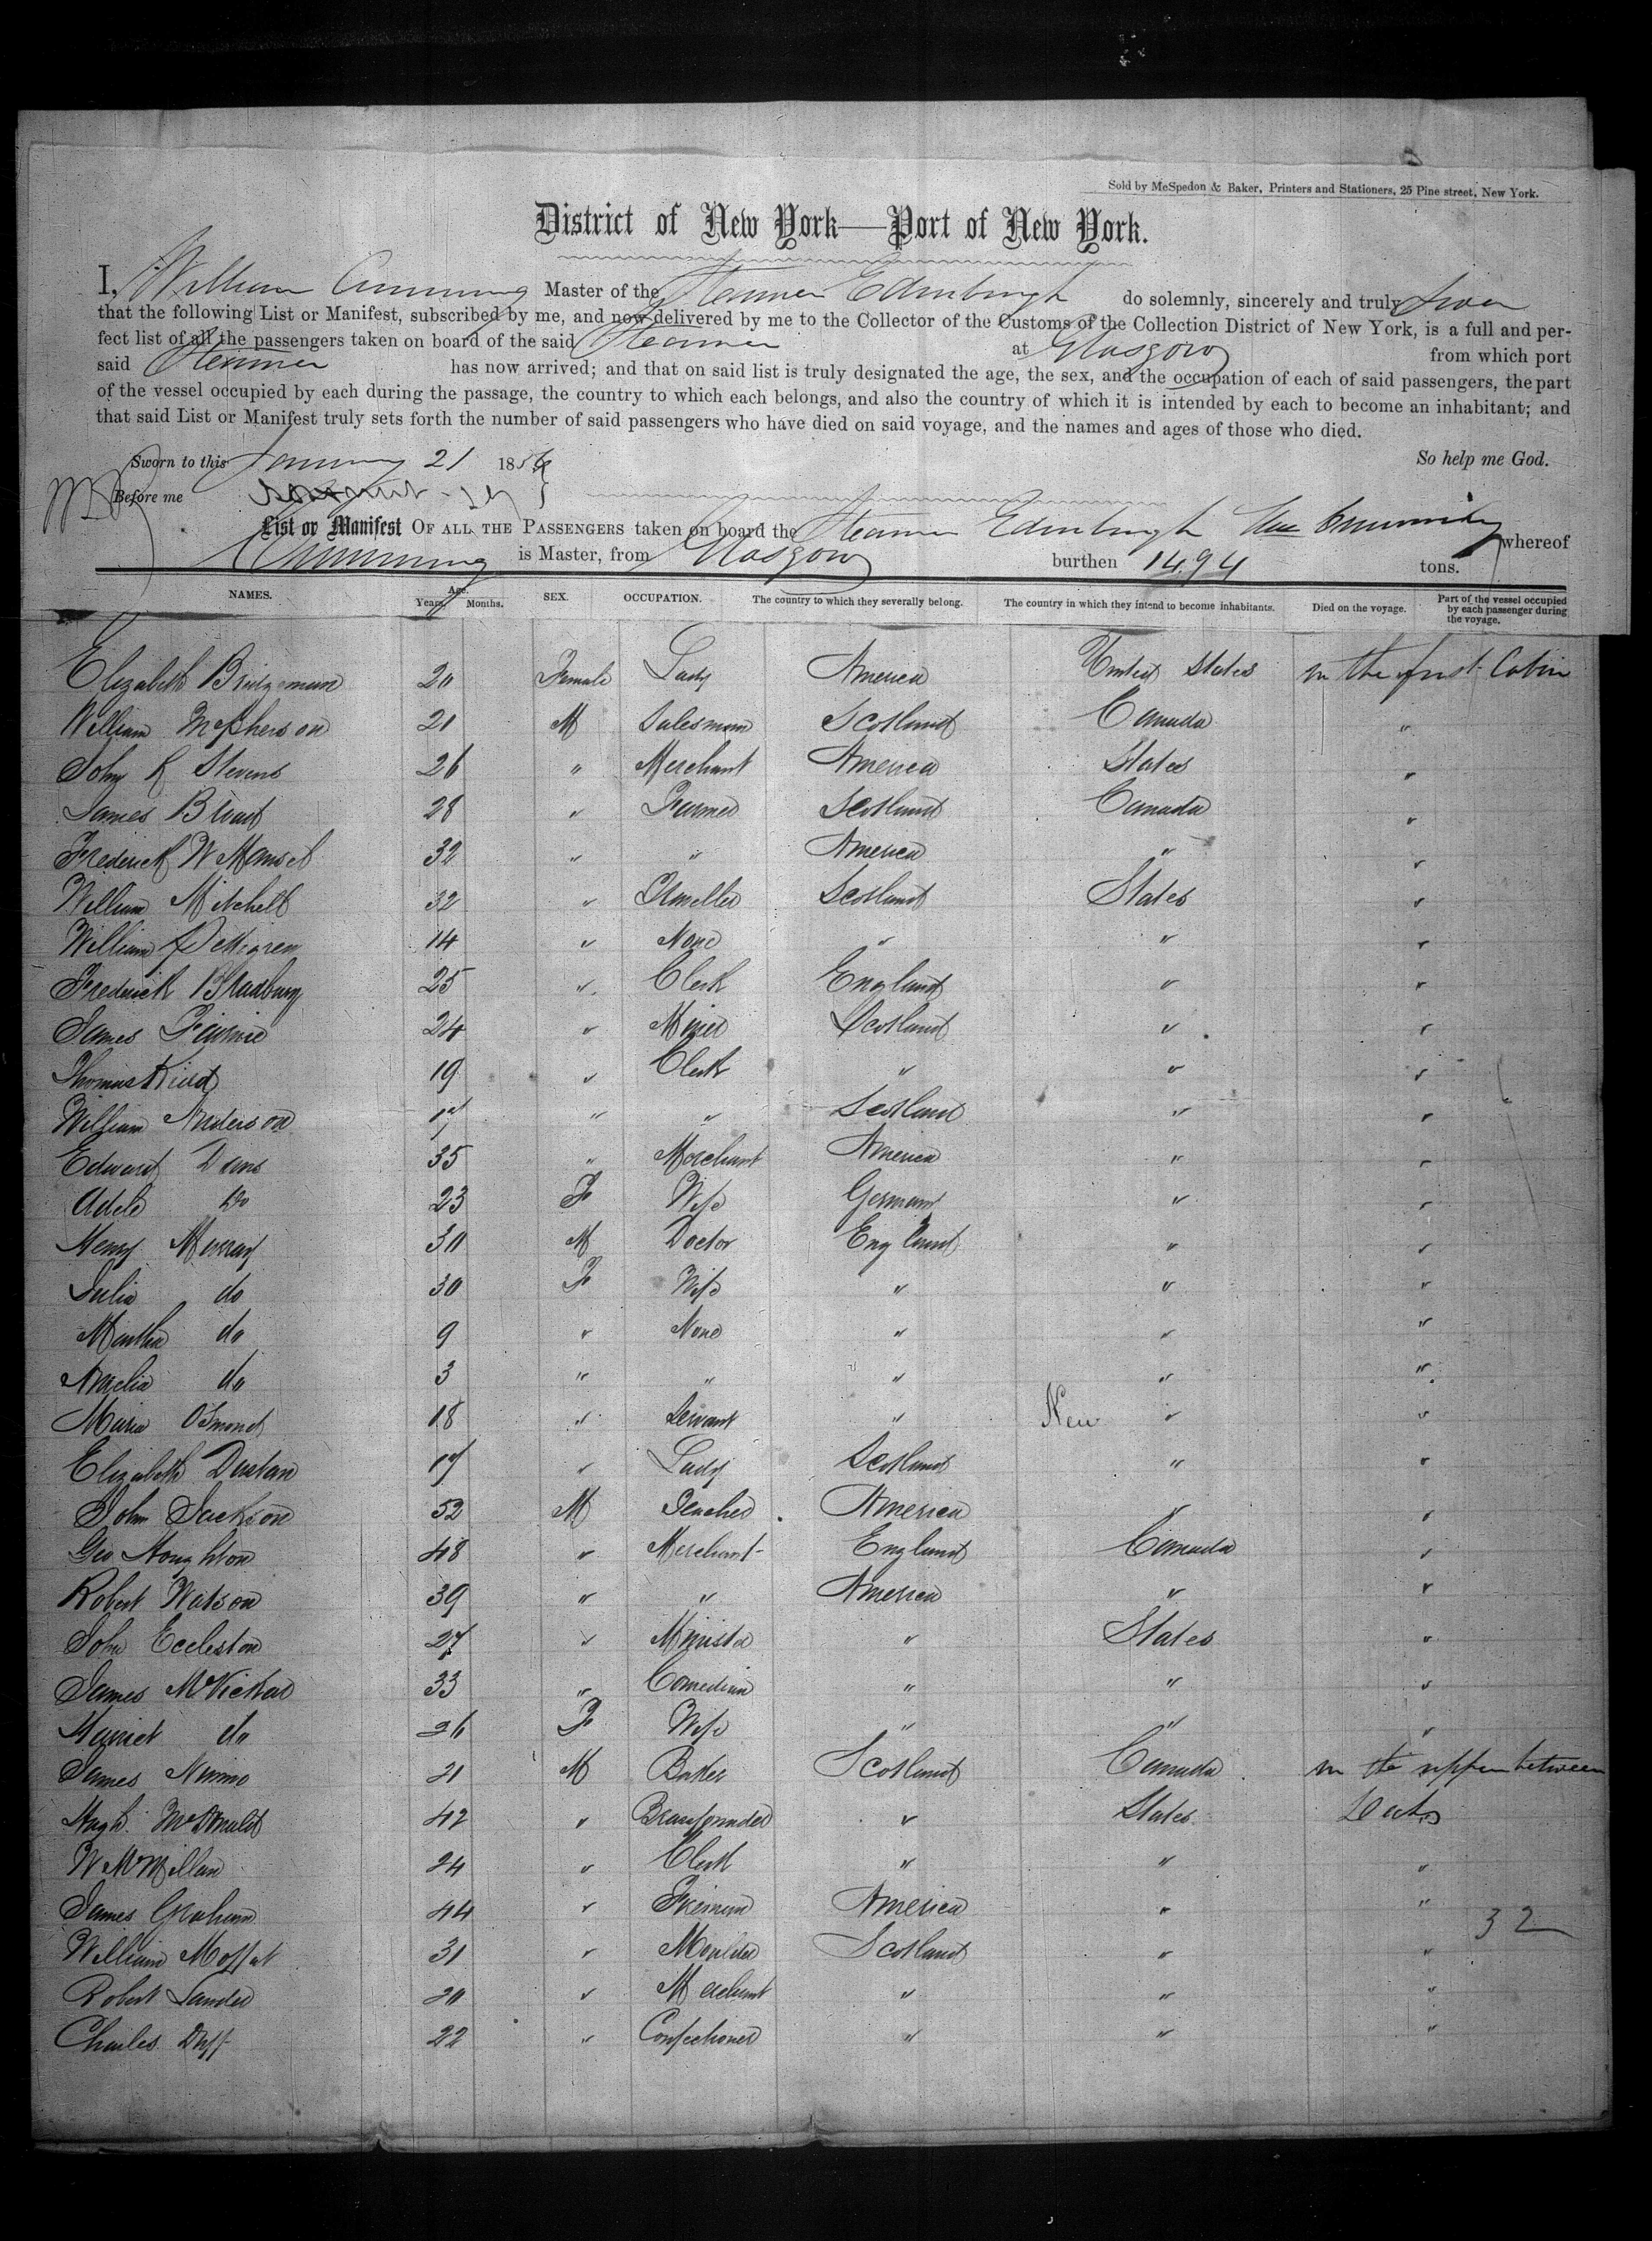 Sold by McSpedon & Baker, Printers and Stationers, 25 Pine street, New York.
District of New York—Port of New York.
I, William Cumming Master of the Steamer Edinburgh do solemnly, sincerely and truly swear
that the following List or Manifest, subscribed by me, and now delivered by me to the Collector of the Customs of the Collection District of New York, is a full and per-
fect list of all the passengers taken on board of the said Steamer at Glasgow from which port
said Steamer has now arrived; and that on said list is truly designated the age, the sex, and the occupation of each of said passengers, the part
of the vessel occupied by each during the passage, the country to which each belongs, and also the country of which it is intended by each to become an inhabitant; and
that said List or Manifest truly sets forth the number of said passengers who have died on said voyage, and the names and ages of those who died.
Sworn to this January 21 1856 So help me God.
Before me
List or Manifest OF ALL THE PASSENGERS taken on board the Steamer Edinburgh Wm Cumming whereof
Cumming is Master, from Glasgow burthen 1494 tons.
NAMES. Age. Years. Months. SEX. OCCUPATION. The country to which they severally belong. The country in which they intend to become inhabitants. Died on the voyage. Part of the vessel occupied by each passenger during the voyage.
Elizabeth Bridgeman 20 Female Lady America United States in the first Cabin
William McPherson 21 M Salesman Scotland Canada "
John R Stevens 26 " Merchant America States "
James Broad 28 " Farmer Scotland Canada "
Frederick W 32 " " America " "
William Mitchell 32 " Scotland States "
William Pettigrew 14 " None " " "
Frederick Bradbury 25 " Clerk England " "
James Fairnie 24 " Miner Scotland " "
Thomas Kidd 19 " Clerk " " "
William Anderson 17 " " Scotland " "
Edward Dans 35 " Merchant America " "
Adele Do 23 F Wife Germany " "
Henry Murray 30 M Doctor England " "
Julia do 30 F Wife " " "
Martha do 9 " None " " "
Amelia do 3 " " " " "
Maria Osmond 18 " Servant " New " "
Elizabeth Dustan 17 " Lady Scotland " "
John Jackson 52 M Teacher America " "
Geo Houghton 48 " Merchant England Canada "
Robert Watson 39 " " America " "
John Eccleston 27 " Minister " States "
James McVickar 33 " Comedian " " "
Harriet do 26 F Wife " " "
James Nimmo 21 M Baker Scotland Canada in the upper between
Hugh McDonald 42 " Brassfounder " States Decks
W McMillan 24 " Clerk " " "
James Graham 44 " Fireman America " "
William Moffat 31 " Moulder Scotland " "
32
Robert Lauder 20 " " " "
Charles Duff 22 " Confectioner " " "